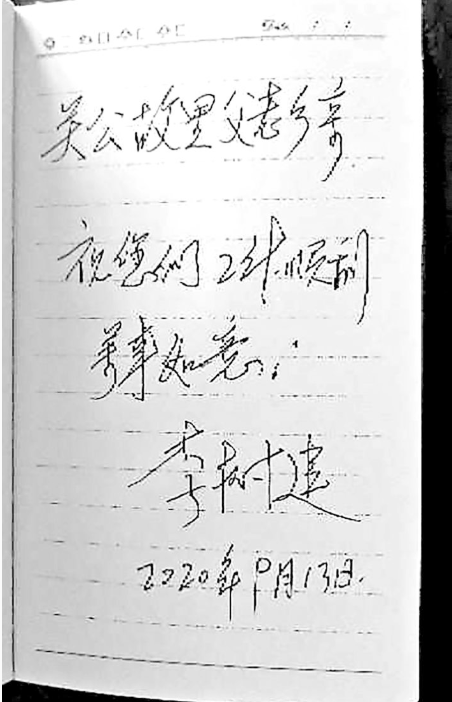 关公故里父老乡亲
祝您们工作顺利
万事如意!
李树建
2020年9月13日.